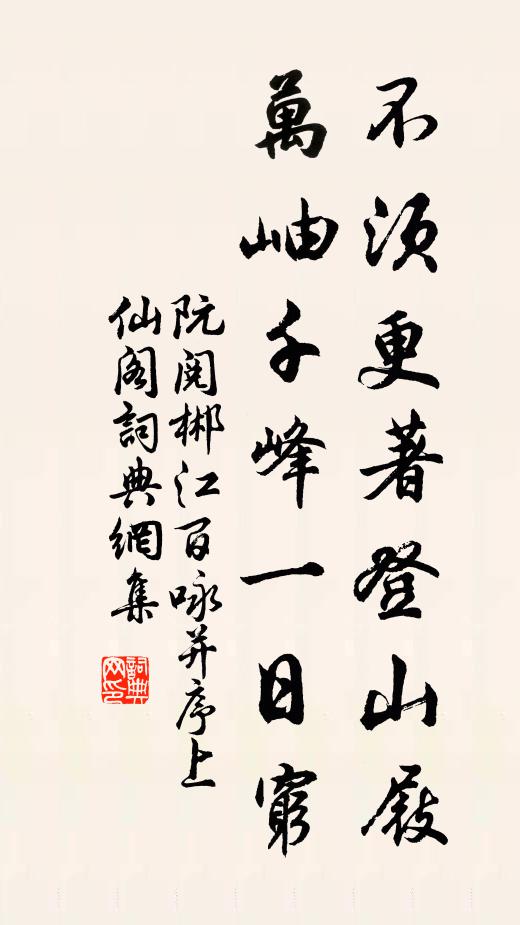 不須更著登山屐
萬岫千峰一日窮
阮閱郴江百咏并序上
仙閣詞典網集
詞典网印